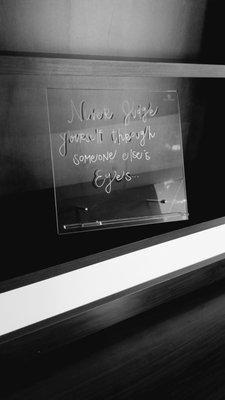 Never Judge
yourself through
someone else's
Eyes...